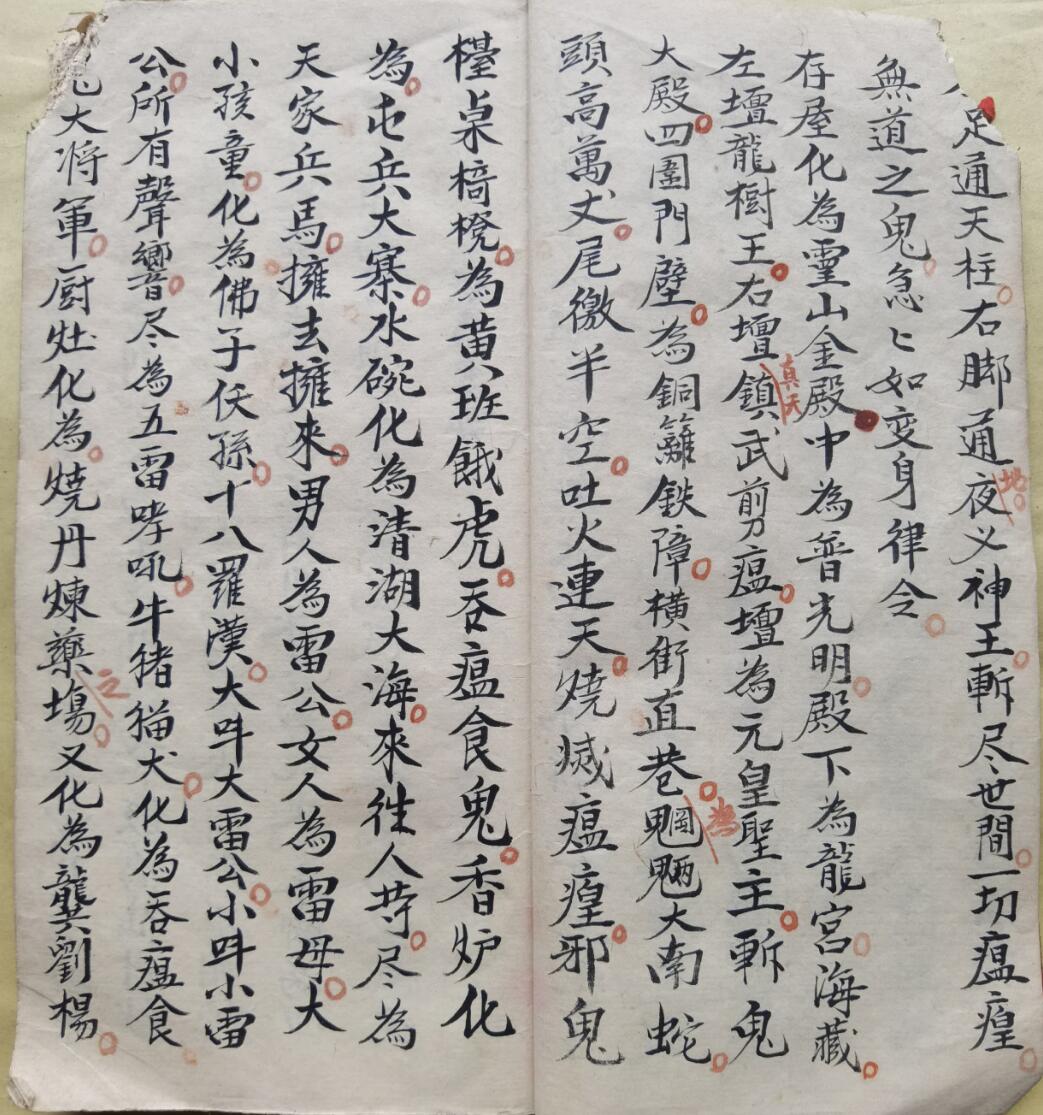 足通天柱右脚通夜义神王斬尽世間一切瘟瘽
地
無道之鬼急ヒ如变身律令
存屋化為霊山金殿中為普光明殿下為龍宮海藏
左壇龍樹王右壇鎮武剪瘟壇為元皇聖主斬鬼
真天
大殿四圍門壁為銅籬鉄障横街直巷魍魎大南蛇
為
頭高萬丈尾徼半空吐火連天燒滅瘟瘽邪鬼
檯桌椅櫈為黄班餓虎吞瘟食鬼香炉化
為屯兵大寨水碗化為清湖大海來徃人等尽為
天家兵馬擁去擁來男人為雷公女人為雷母大
小孩童化為佛子伕孫十八羅漢大呌大雷公小呌小雷
公所有聲響尽為五雷哮吼牛猪猫犬化為吞瘟食
鬼大将軍厨灶化為燒丹煉藥塲又化為龔劉楊
之